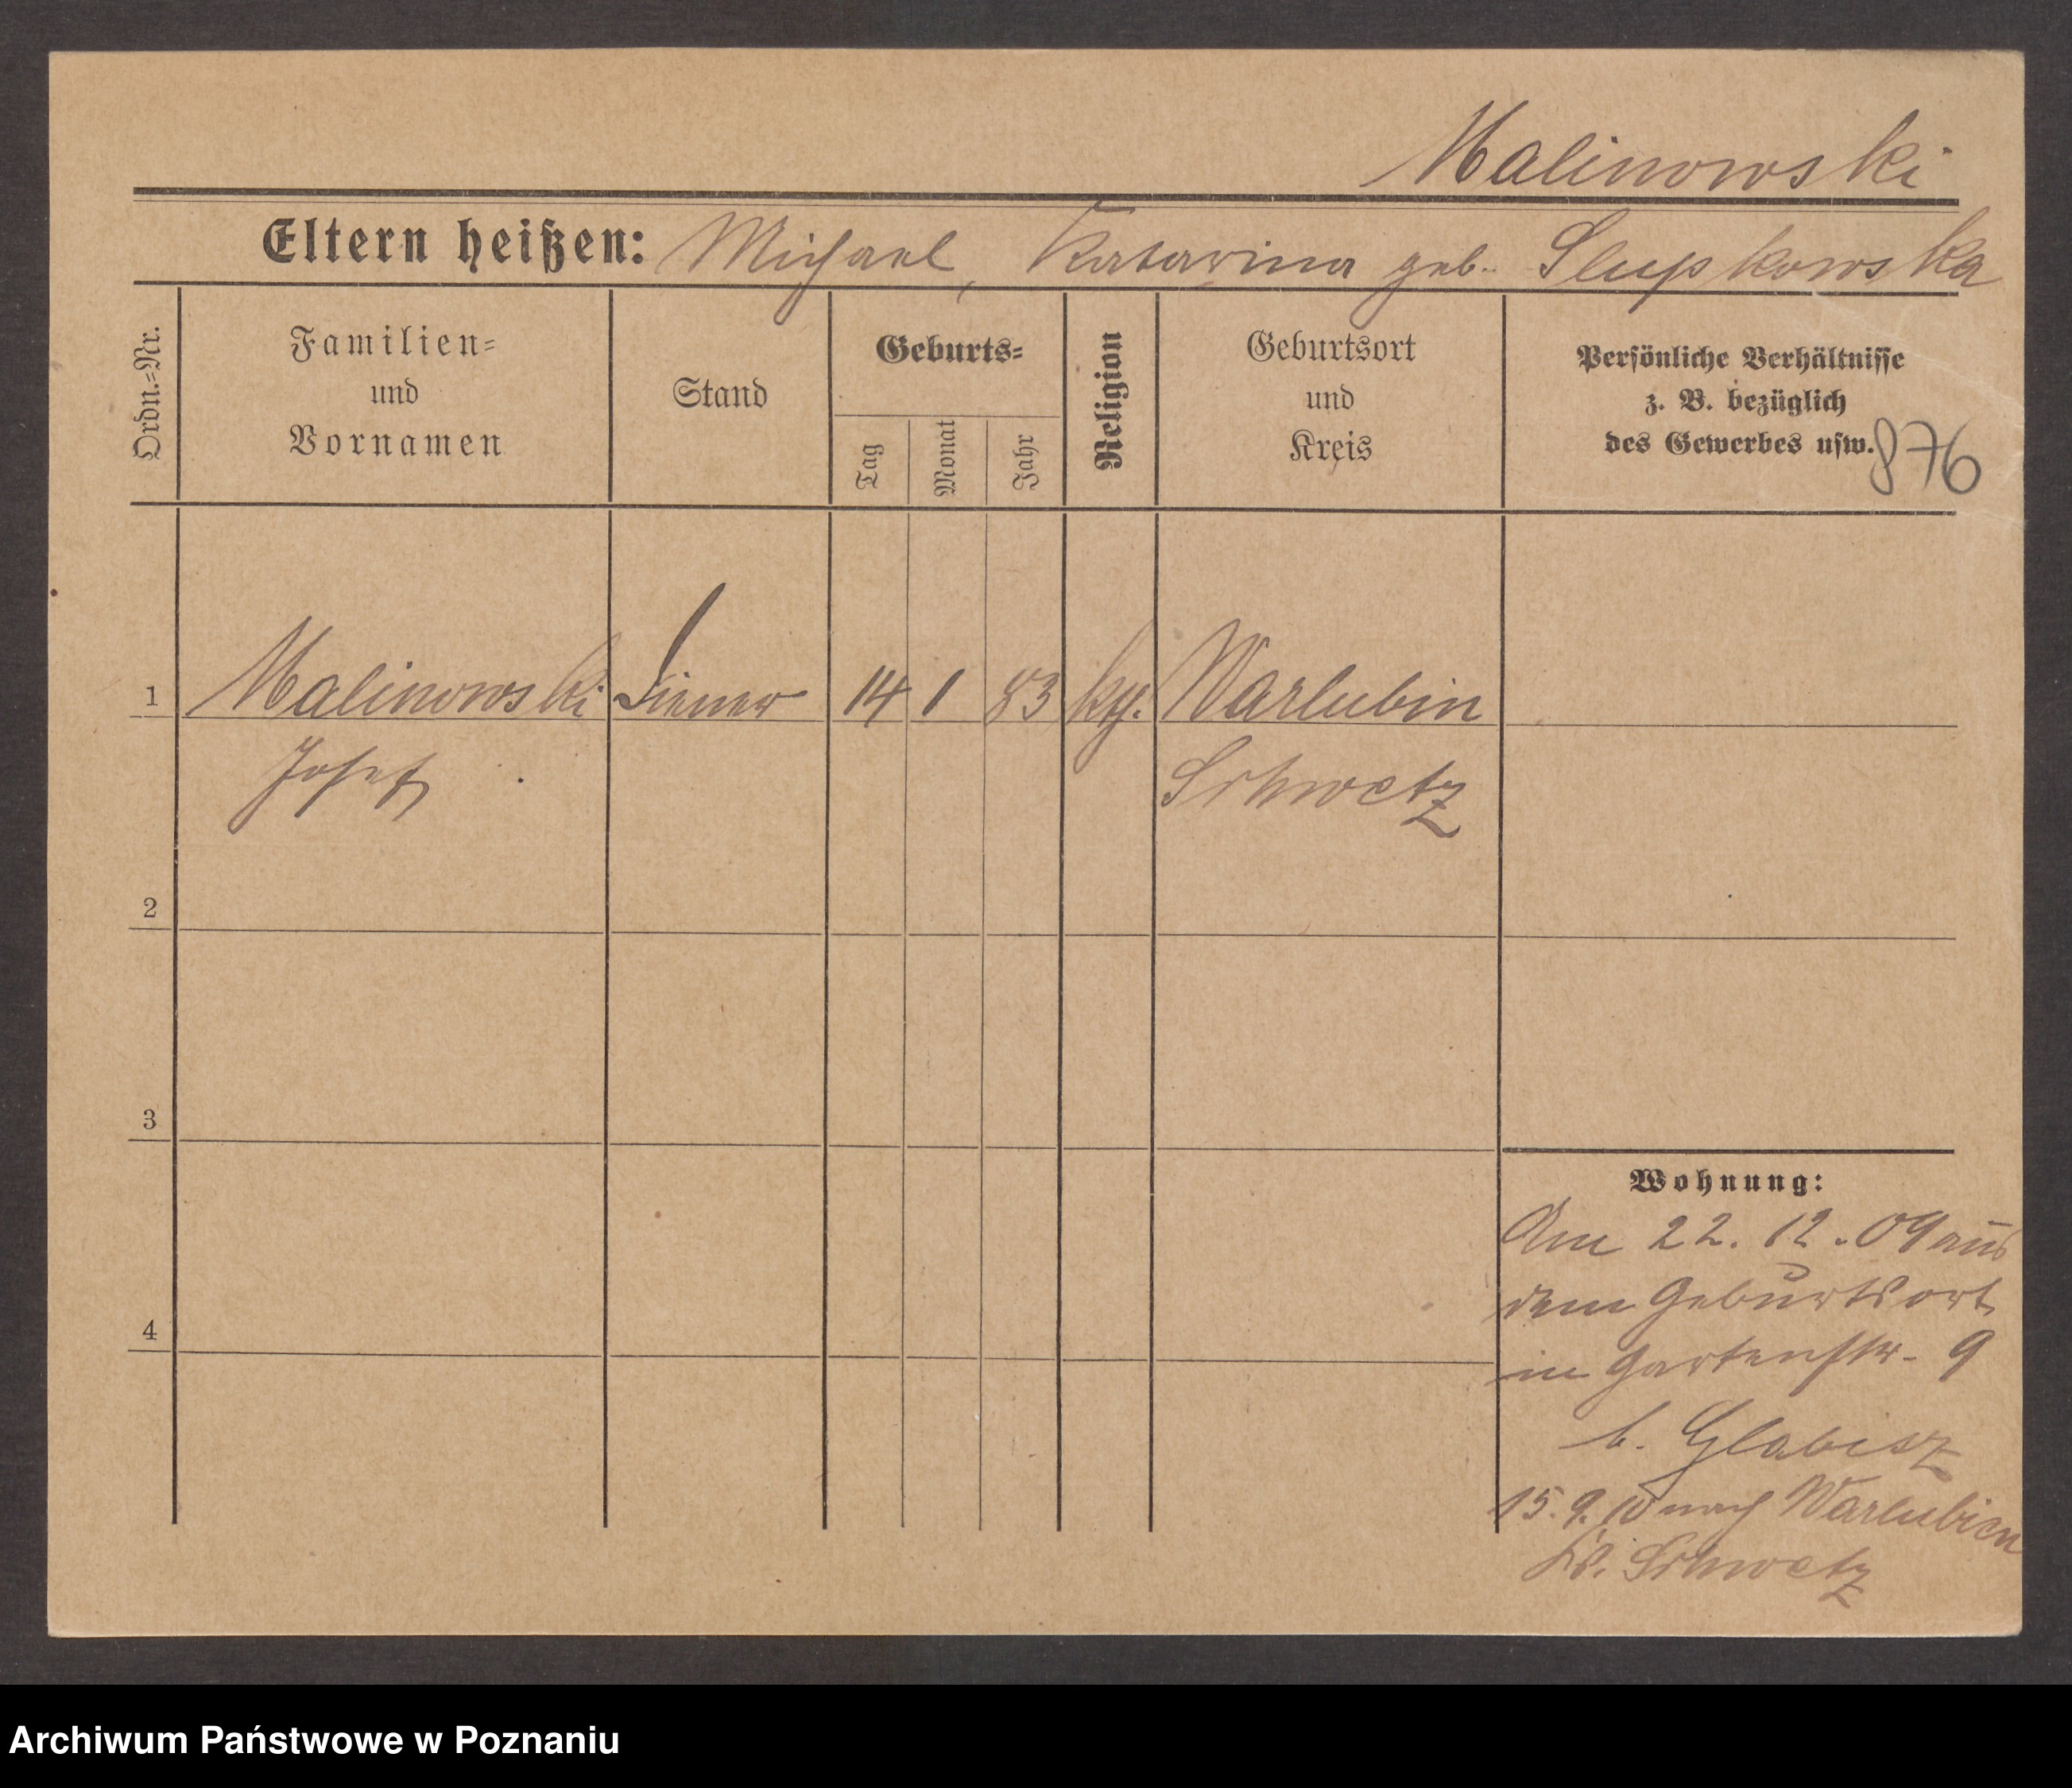 Malinowski
Eltern heißen: Michael, Katarina geb. Slupkowska
Ordn.-Nr.
Familien-
und
Vornamen
Stand
Geburts-
Tag
Monat
Jahr
Religion
Geburtsort
und
Kreis
Persönliche Verhältnisse
z. B. bezüglich
des Gewerbes usw.
876
1 Malinowski Diener 14 1 83 kth. Warlubin
Josef Schwetz
2
3
4
Wohnung:
Am 22. 12. 09 aus
dem Geburtsort
in Gartenstr. 9
b. Glabisz
15. 9. 10 nach Warlubien
Kr. Schwetz
Archiwum Państwowe w Poznaniu